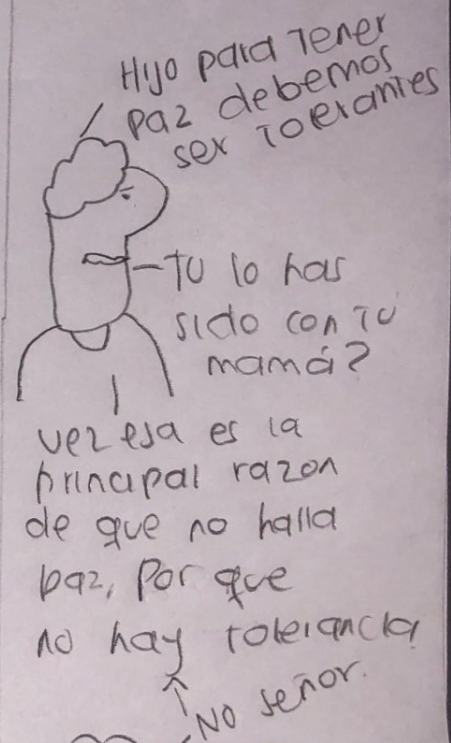 Hijo para Tener
paz debemos
ser Tolerantes
Tu lo has
sido con Tu
mamá?
vez esa es la
principal razon
de que no halla
paz, Por que
no hay tolerancia
No señor.